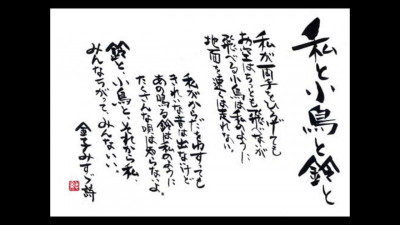 私と小鳥と鈴と
私が両手をひろげても
お空はちっとも飛べないが
飛べる小鳥は私のように
地面を速くは走れない
私がからだをゆすっても
きれいな音は出ないけど
あの鳴る鈴は私のように
たくさんな唄は知らないよ。
鈴と、小鳥と、それから私、
みんなちがって、みんないい、
金子みすゞ詩